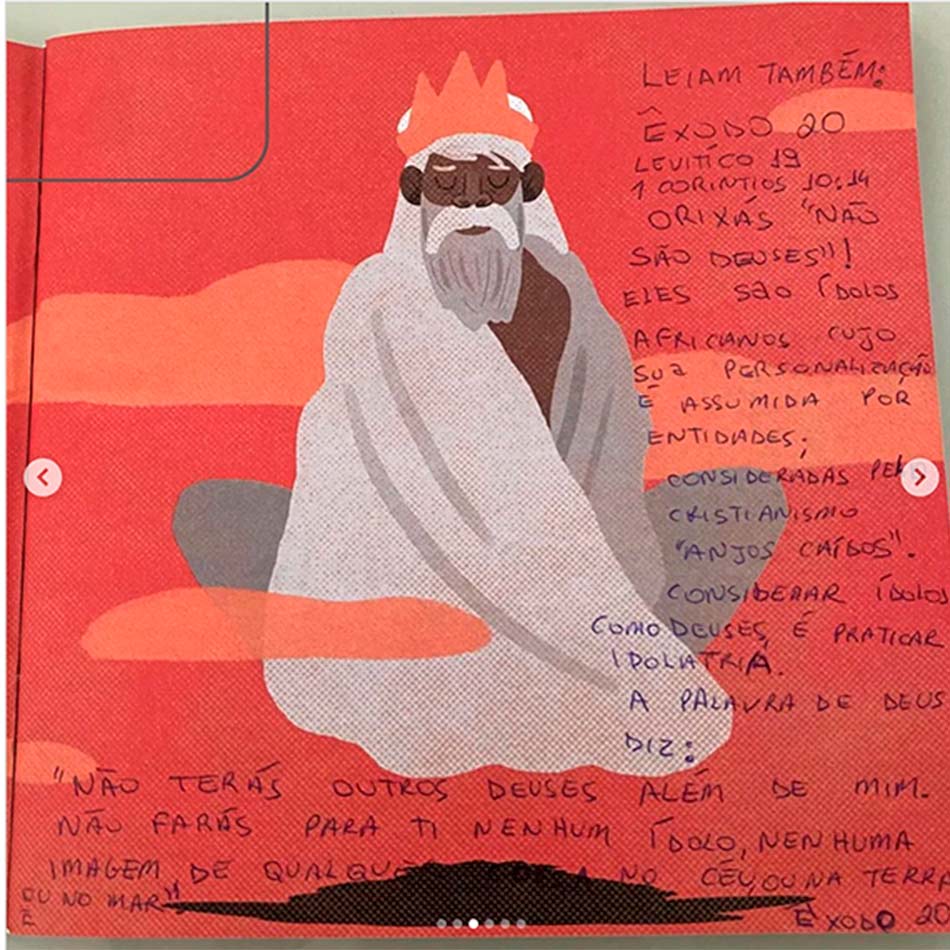 LEIAM TAMBÉM:
ÊXODO 20
LEVITÍCO 19
1 CORINTIOS 10:14
ORIXÁS "NÃO
SÃO DEUSES"!
ELES SÃO ÍDOLOS
AFRICANOS CUJO
SUA PERSONALIZAÇÃO
É ASSUMIDA POR
ENTIDADES;
CONSIDERADAS PEL
CRISTIANISMO
"ANJOS CAÍDOS".
CONSIDERAR ÍDOLOS
COMO DEUSES, É PRATICAR
IDOLATRIA.
A PALAVRA DE DEUS
DIZ:
"NÃO TERÁS OUTROS DEUSES ALÉM DE MIM.
NÃO FARÁS PARA TI NENHUM ÍDOLO, NENHUMA
IMAGEM DE QUALQUER COISA NO CÉU, OU NA TERRA
OU NO MAR"
ÊXODO 20